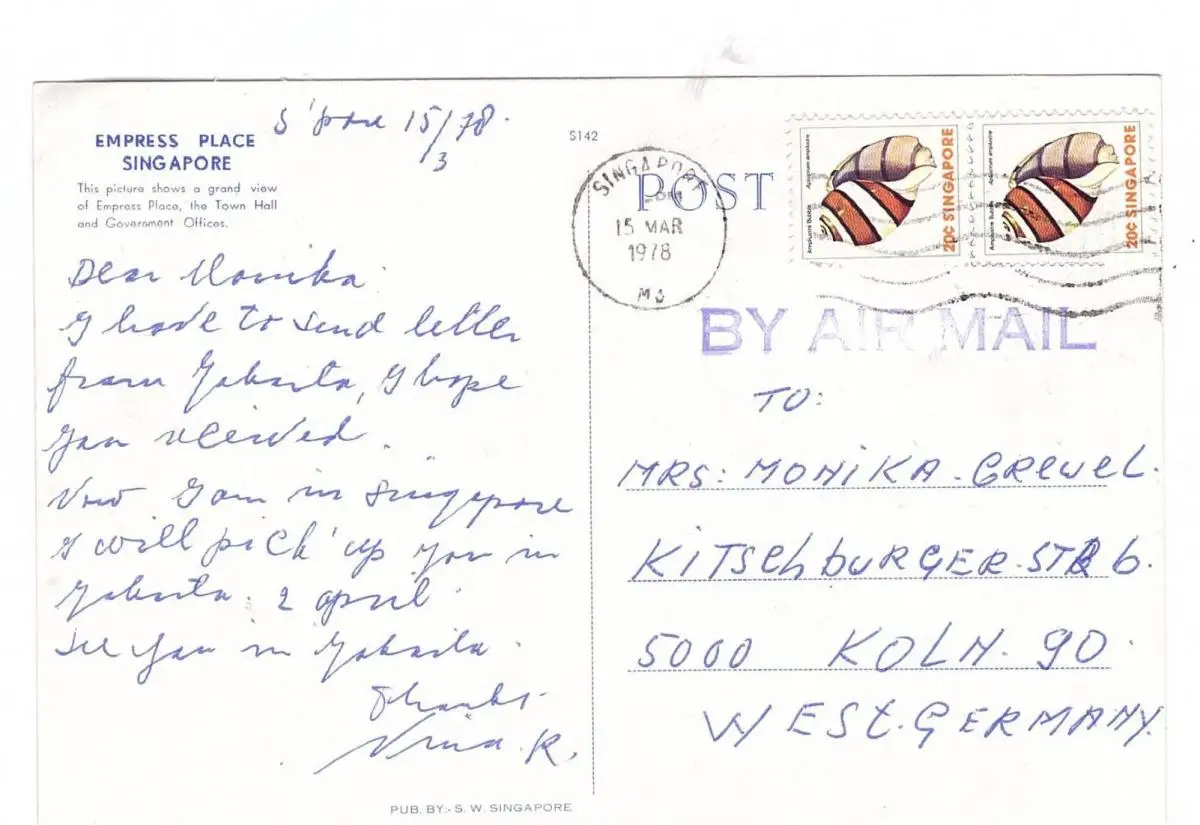 EMPRESS PLACE
SINGAPORE
This picture shows a grand view
of Empress Place, the Town Hall
and Government Offices.
S'pore 15/3/78.
Dear Monika.
I have to send letter
from Yakarta, I hope
you received.
Now I am in Singapore
I will pick up you in
Yakarta. 2 april.
See you in Yakarta.
Thanks.
R.
PUB. BY:- S. W. SINGAPORE
S142
POST
SINGAPORE
15 MAR
1978
Amplustre Bubble
20¢ SINGAPORE
Amplustre Bubble
20¢ SINGAPORE
BY AIR MAIL
TO:
MRS: MONIKA. GREWEL.
KITSCHBURGER. STR 6.
5000 KOLN. 90.
WEST. GERMANY.